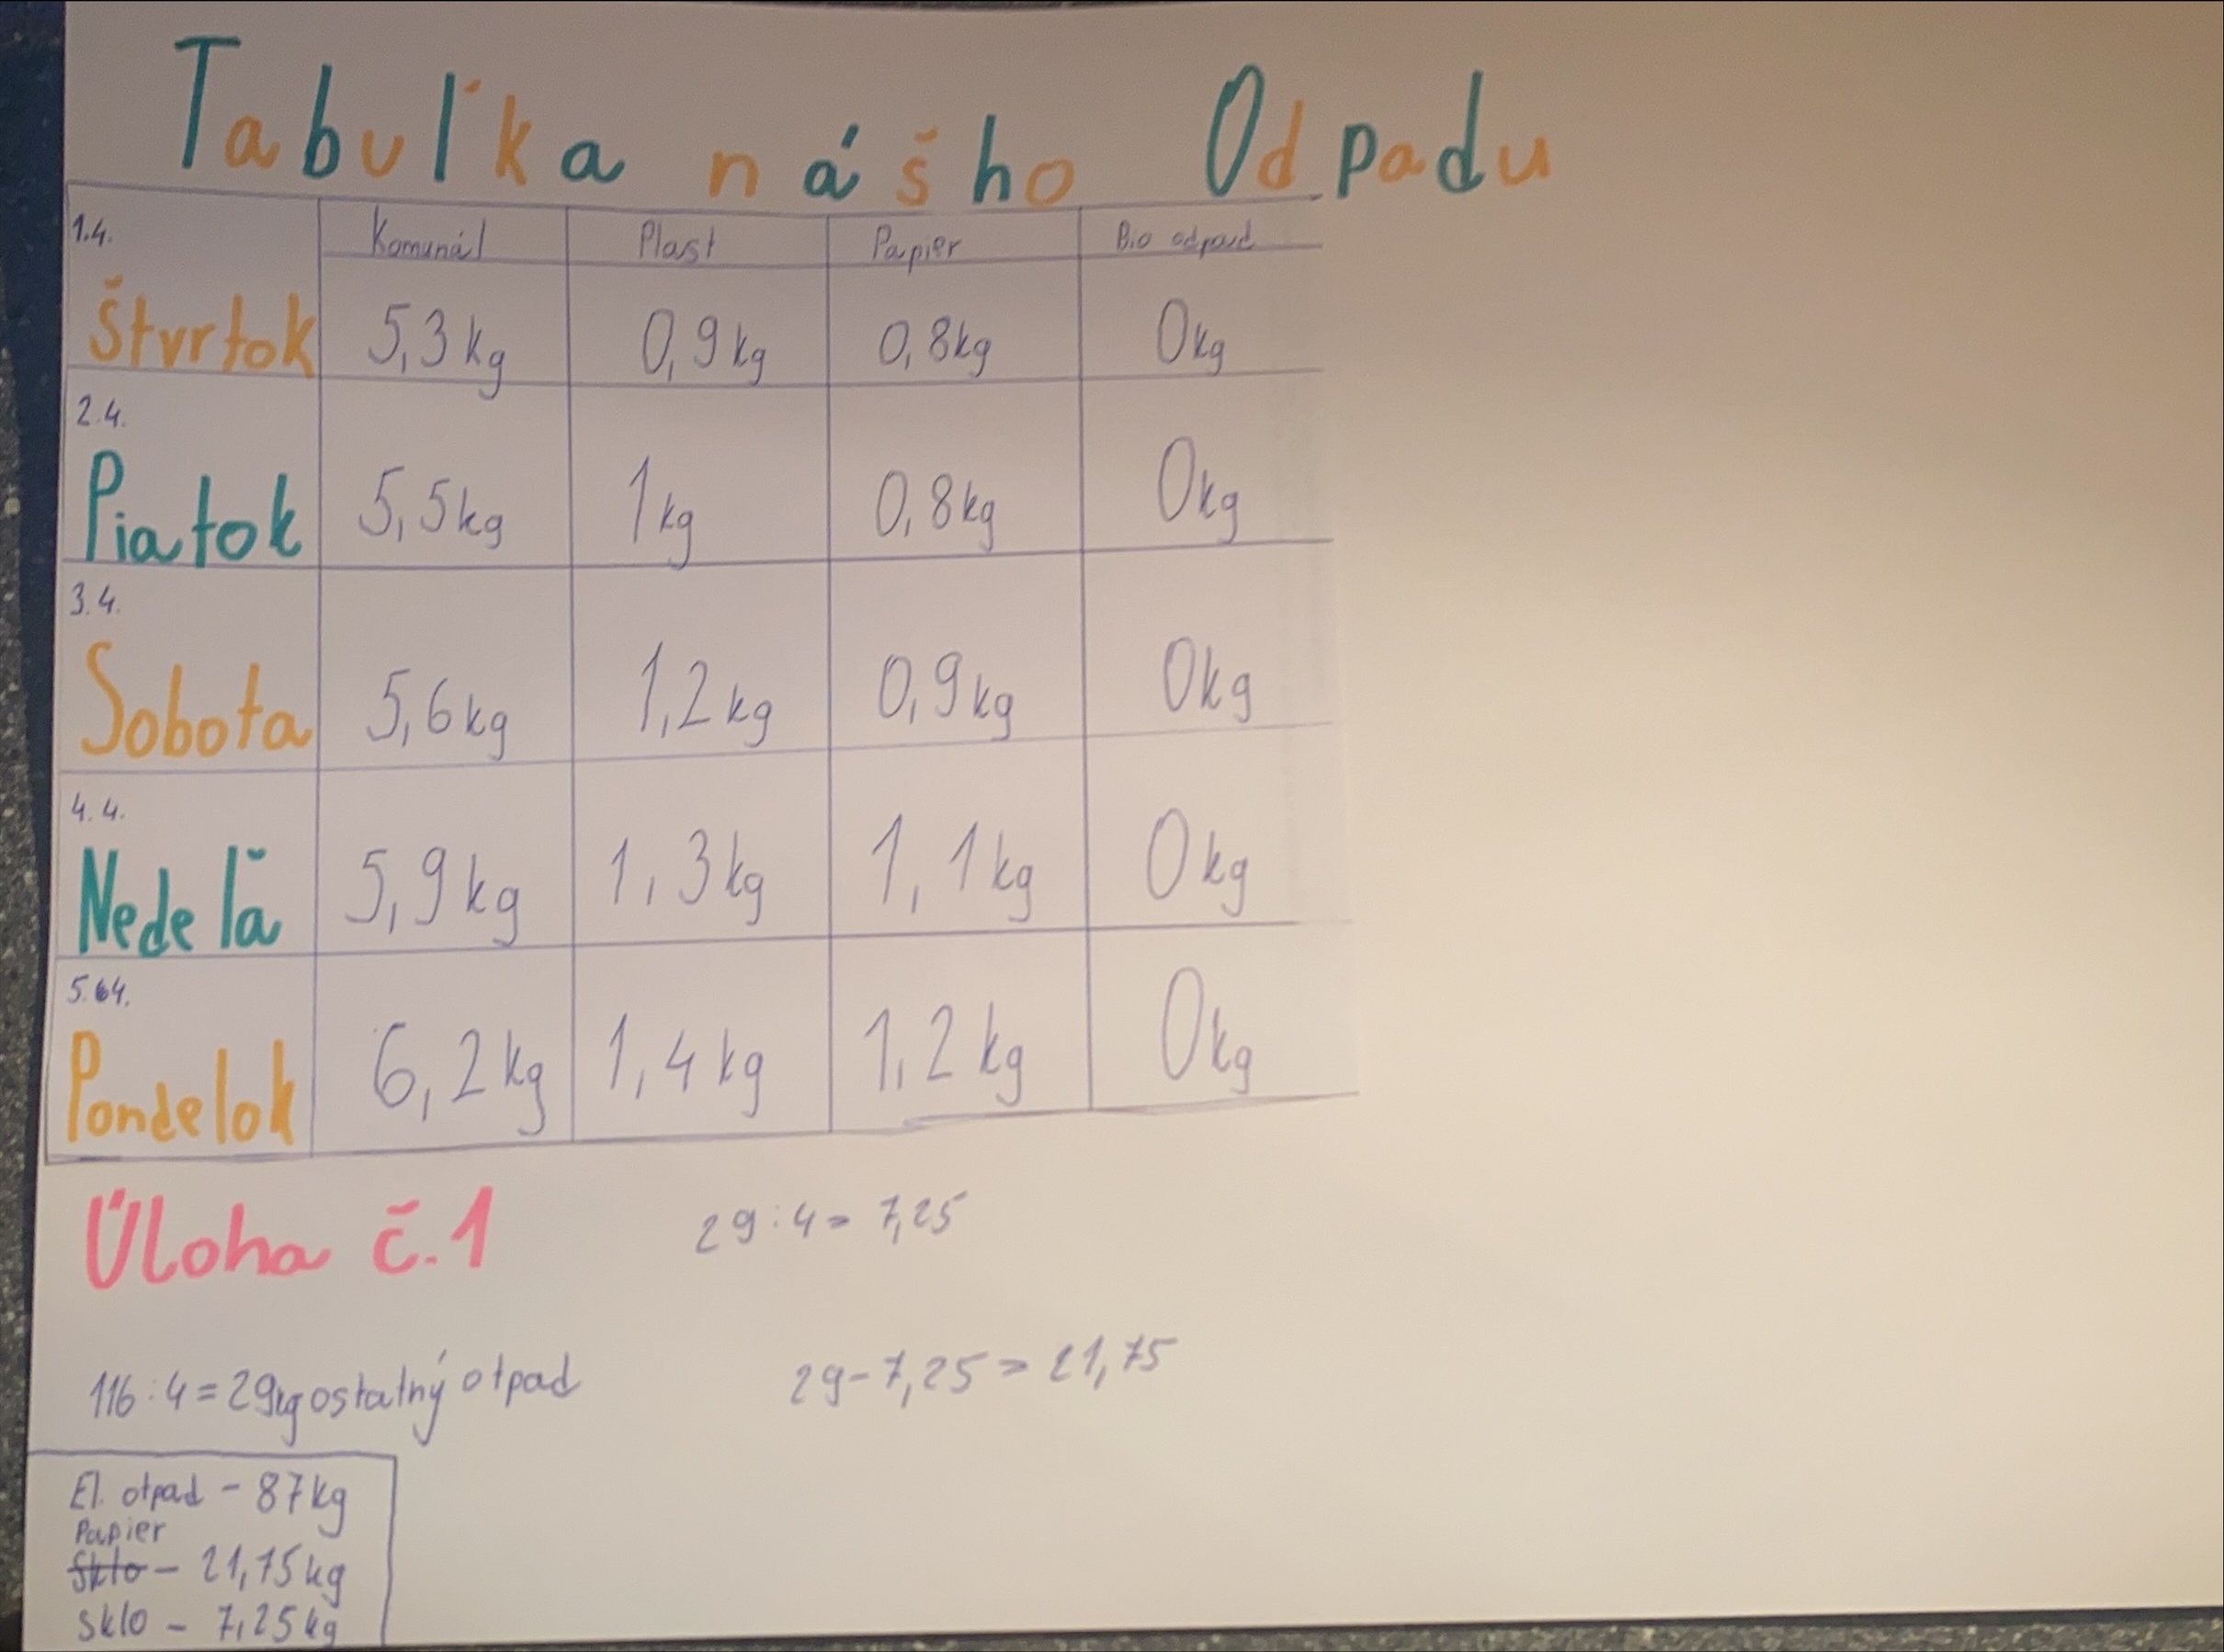 Tabuľka nášho Odpadu
1.4. Komunál Plast Papier Bio odpad
Štvrtok 5,3 kg 0,9 kg 0,8 kg 0 kg
2.4.
Piatok 5,5 kg 1 kg 0,8 kg 0 kg
3.4.
Sobota 5,6 kg 1,2 kg 0,9 kg 0 kg
4.4.
Nedeľa 5,9 kg 1,3 kg 1,1 kg 0 kg
5.4.
Pondelok 6,2 kg 1,4 kg 1,2 kg 0 kg
Úloha č.1 29:4= 7,25
116:4=29kg ostatný otpad 29-7,25=21,75
El. otpad - 87kg
Papier
Sklo - 21,75kg
sklo - 7,25kg